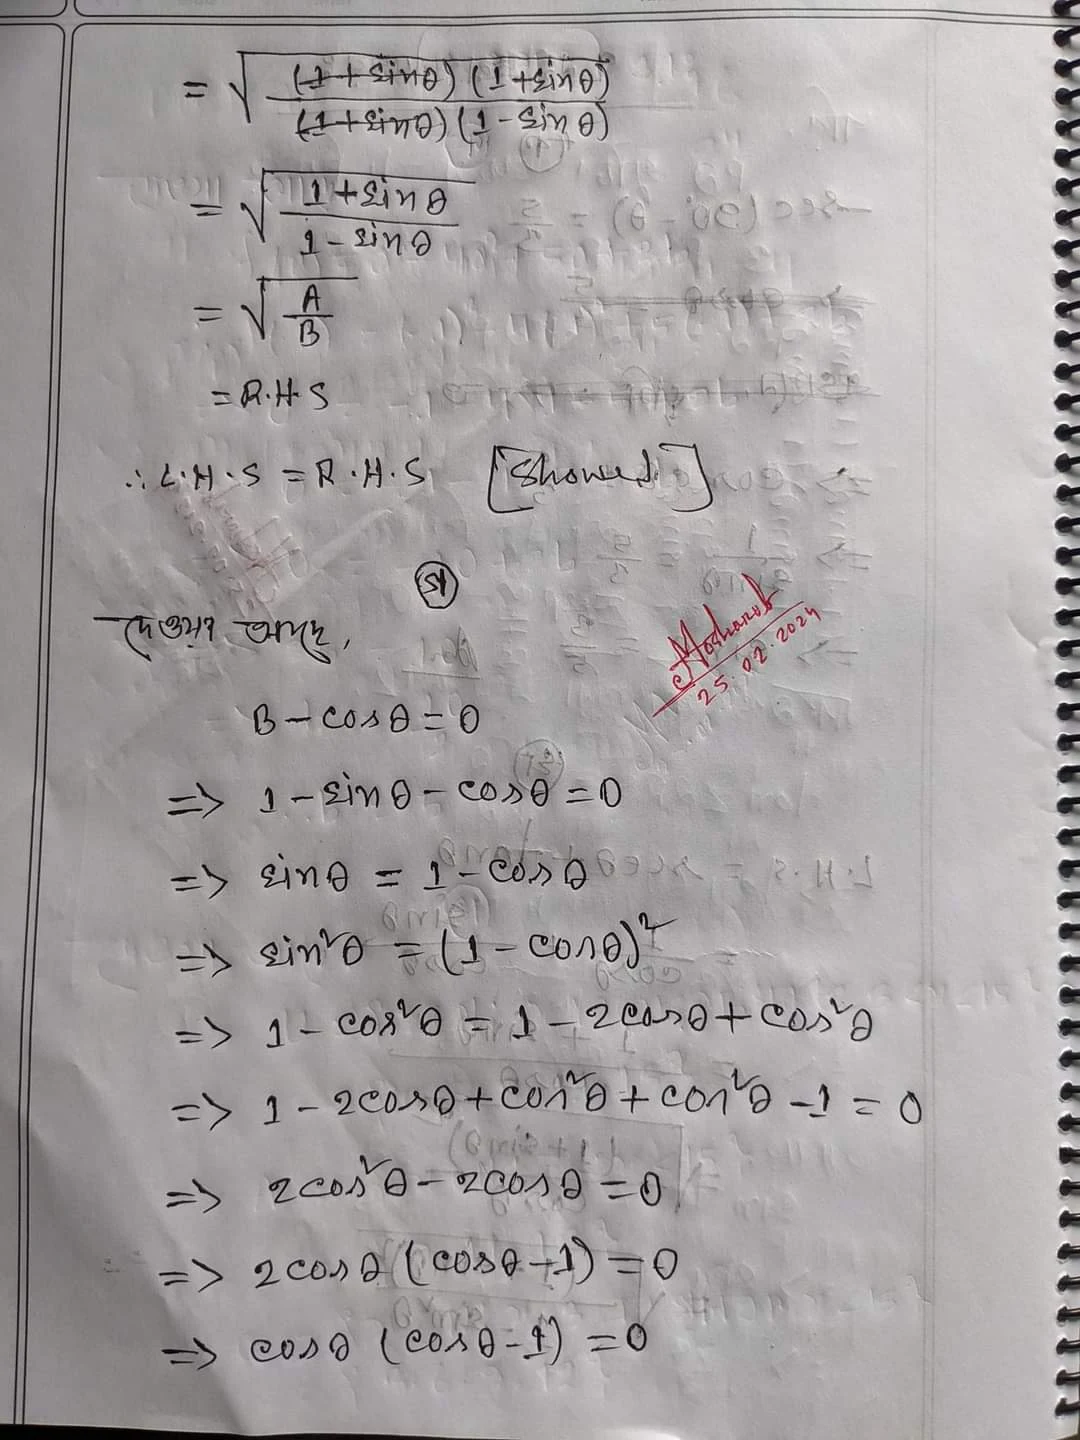 = √((1+sinθ)(1+sinθ) / (1+sinθ)(1-sinθ))
= √((1+sinθ) / (1-sinθ))
= √(A/B)
= R.H.S
∴ L.H.S = R.H.S [Showed]
দেওয়া আছে,
25.02.2024
B - cosθ = 0
=> 1 - sinθ - cosθ = 0
=> sinθ = 1 - cosθ
=> sin²θ = (1 - cosθ)²
=> 1 - cos²θ = 1 - 2cosθ + cos²θ
=> 1 - 2cosθ + cos²θ + cos²θ - 1 = 0
=> 2cos²θ - 2cosθ = 0
=> 2cosθ (cosθ - 1) = 0
=> cosθ (cosθ - 1) = 0